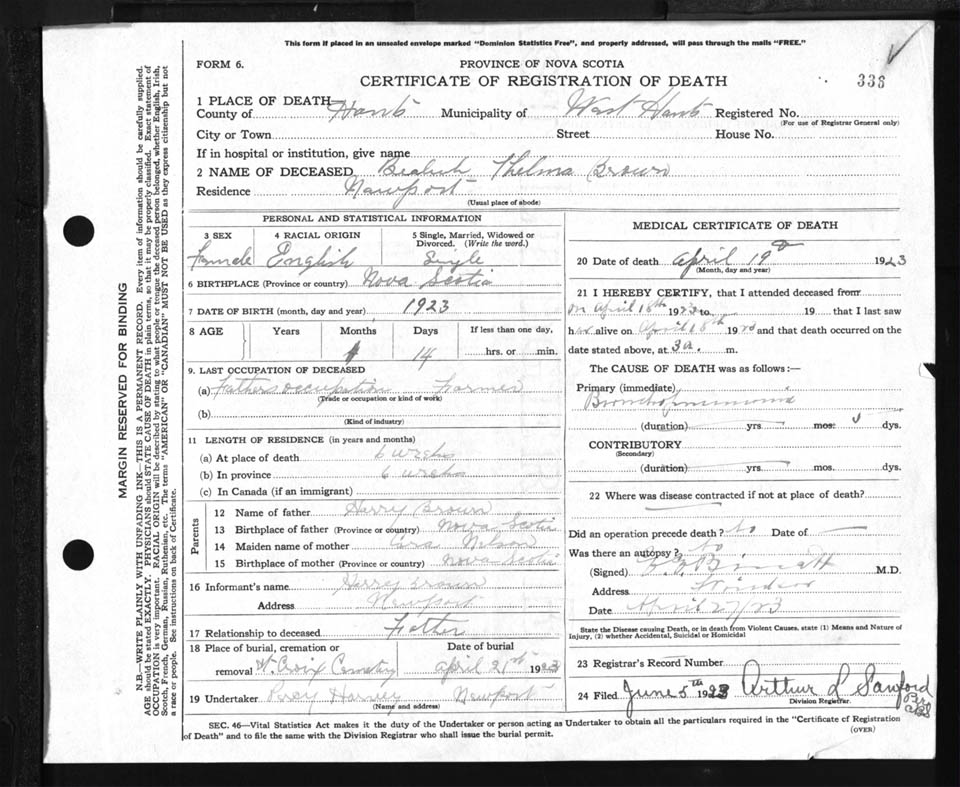 This form if placed in an unsealed envelope marked "Dominion Statistics Free", and properly addressed, will pass through the mails "FREE."
FORM 6.
PROVINCE OF NOVA SCOTIA
CERTIFICATE OF REGISTRATION OF DEATH
338
1 PLACE OF DEATH
County of Hants Municipality of West Hants Registered No.
(For use of Registrar General only)
City or Town Street House No.
If in hospital or institution, give name
2 NAME OF DECEASED Thelma Brown
Residence Newport
(Usual place of abode)
PERSONAL AND STATISTICAL INFORMATION
3 SEX 4 RACIAL ORIGIN 5 Single, Married, Widowed or Divorced. (Write the word.)
Female English Single
6 BIRTHPLACE (Province or country) Nova Scotia
7 DATE OF BIRTH (month, day and year) 1923
8 AGE Years Months Days If less than one day,
1 14 hrs. or min.
9. LAST OCCUPATION OF DECEASED
(a) Fathers occupation Farmer
(Trade or occupation or kind of work)
(b)
(Kind of industry)
11 LENGTH OF RESIDENCE (in years and months)
(a) At place of death 6 weeks
(b) In province 6 weeks
(c) In Canada (if an immigrant)
Parents
12 Name of father Harry Brown
13 Birthplace of father (Province or country) Nova Scotia
14 Maiden name of mother Cora Nelson
15 Birthplace of mother (Province or country) Nova Scotia
16 Informant's name Harry Brown
Address Newport
17 Relationship to deceased Father
18 Place of burial, cremation or removal St. Croix Cemetery
Date of burial April 21st 1923
19 Undertaker Percy Harvey Newport
(Name and address)
MEDICAL CERTIFICATE OF DEATH
20 Date of death April 19th 1923
(Month, day and year)
21 I HEREBY CERTIFY, that I attended deceased from
on April 18th 1923 to 19 that I last saw
h er alive on April 18th 1923 and that death occurred on the
date stated above, at 3 a. m.
The CAUSE OF DEATH was as follows:—
Primary (immediate)
Bronchopneumonia
(duration) yrs mos. dys.
CONTRIBUTORY
(Secondary)
(duration) yrs. mos. dys.
22 Where was disease contracted if not at place of death?
Did an operation precede death? No Date of
Was there an autopsy? No
(Signed) M.D.
Address Windsor
Date April 27/23
State the Disease causing Death, or in death from Violent Causes, state (1) Means and Nature of Injury, (2) whether Accidental, Suicidal or Homicidal
23 Registrar's Record Number
24 Filed June 5th 1923 Arthur L Sanford
Division Registrar.
SEC. 46—Vital Statistics Act makes it the duty of the Undertaker or person acting as Undertaker to obtain all the particulars required in the "Certificate of Registration
of Death" and to file the same with the Division Registrar who shall issue the burial permit.
(OVER)
MARGIN RESERVED FOR BINDING
N.B.—WRITE PLAINLY WITH UNFADING INK—THIS IS A PERMANENT RECORD. Every item of information should be carefully supplied.
AGE should be stated EXACTLY. PHYSICIANS should STATE CAUSE OF DEATH in plain terms, so that it may be properly classified. Exact statement of
OCCUPATION is very important. RACIAL ORIGIN will be described by stating to what people or tongue the deceased person belonged, whether English, Irish,
Scotch, French, German, Russian, Ruthenian, etc. The terms "AMERICAN" OR "CANADIAN" MUST NOT BE USED as they express citizenship but not
a race or people. See instructions on back of Certificate.